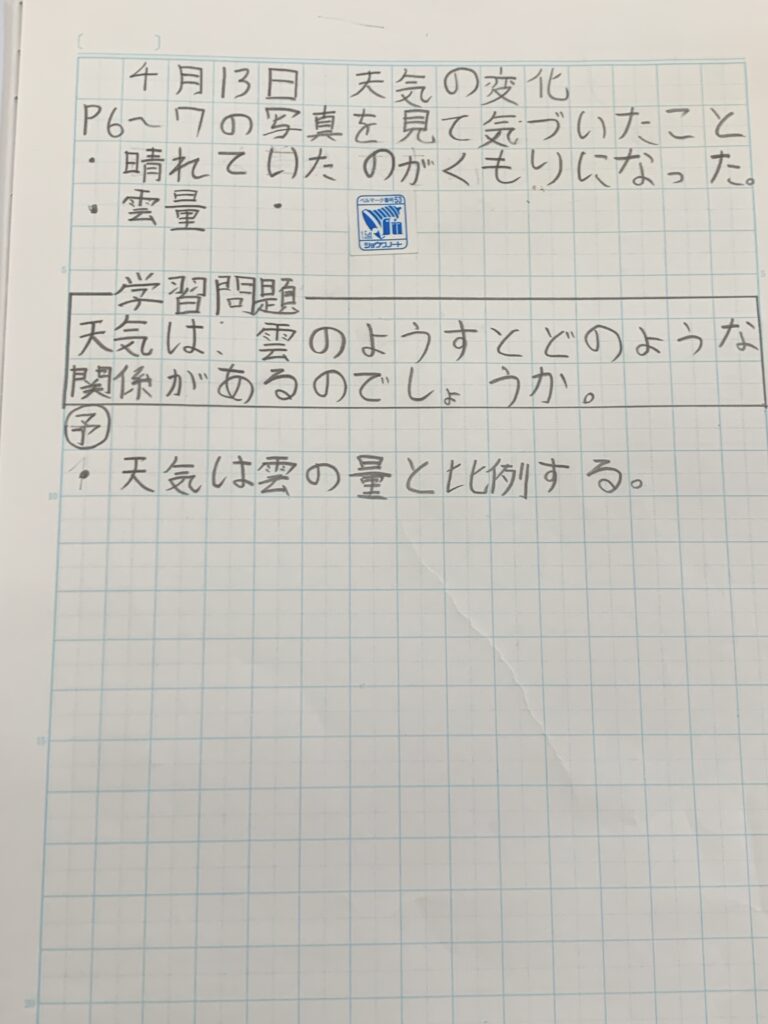 4月13日 天気の変化
P6～7の写真を見て気づいたこと
・晴れていたのがくもりになった。
・雲量 ・
ベルマーク番号53
ショウワノート
学習問題
天気は、雲のようすとどのような
関係があるのでしょうか。
予
・天気は雲の量と比例する。